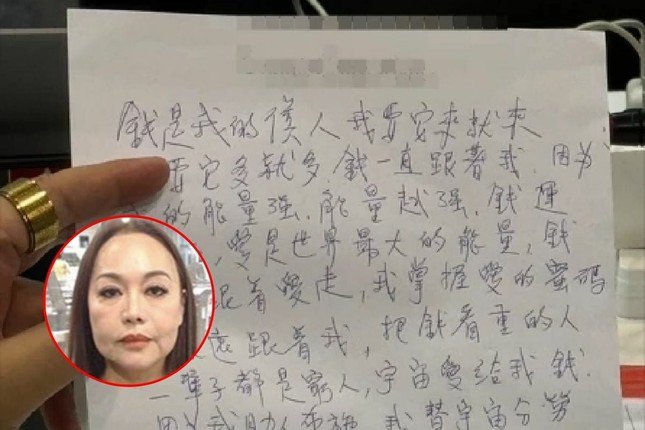 錢是我的僕人我要它來就來
要它多就多,錢一直跟著我.因为
的能量强.能量越强.錢運
愛是世界最大的能量,錢
跟着愛走,我掌握愛的蜜碼
遠跟着我,把錢看重的人
一輩子都是窮人,宇宙愛给我錢.
因为我助人布施,我替宇宙分勞